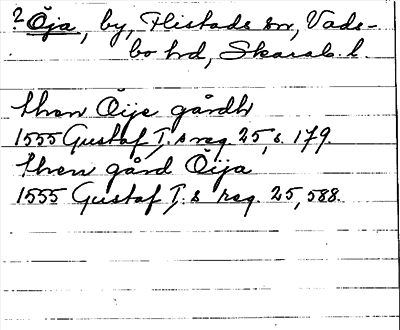 ? Öja, by, Flistads sn, Vads-
bo hd, Skarab. l.
thren Öije gårdh
1555 Gustaf I:s reg. 25, s. 179.
thren gård Öija
1555 Gustaf I:s reg. 25, 588.